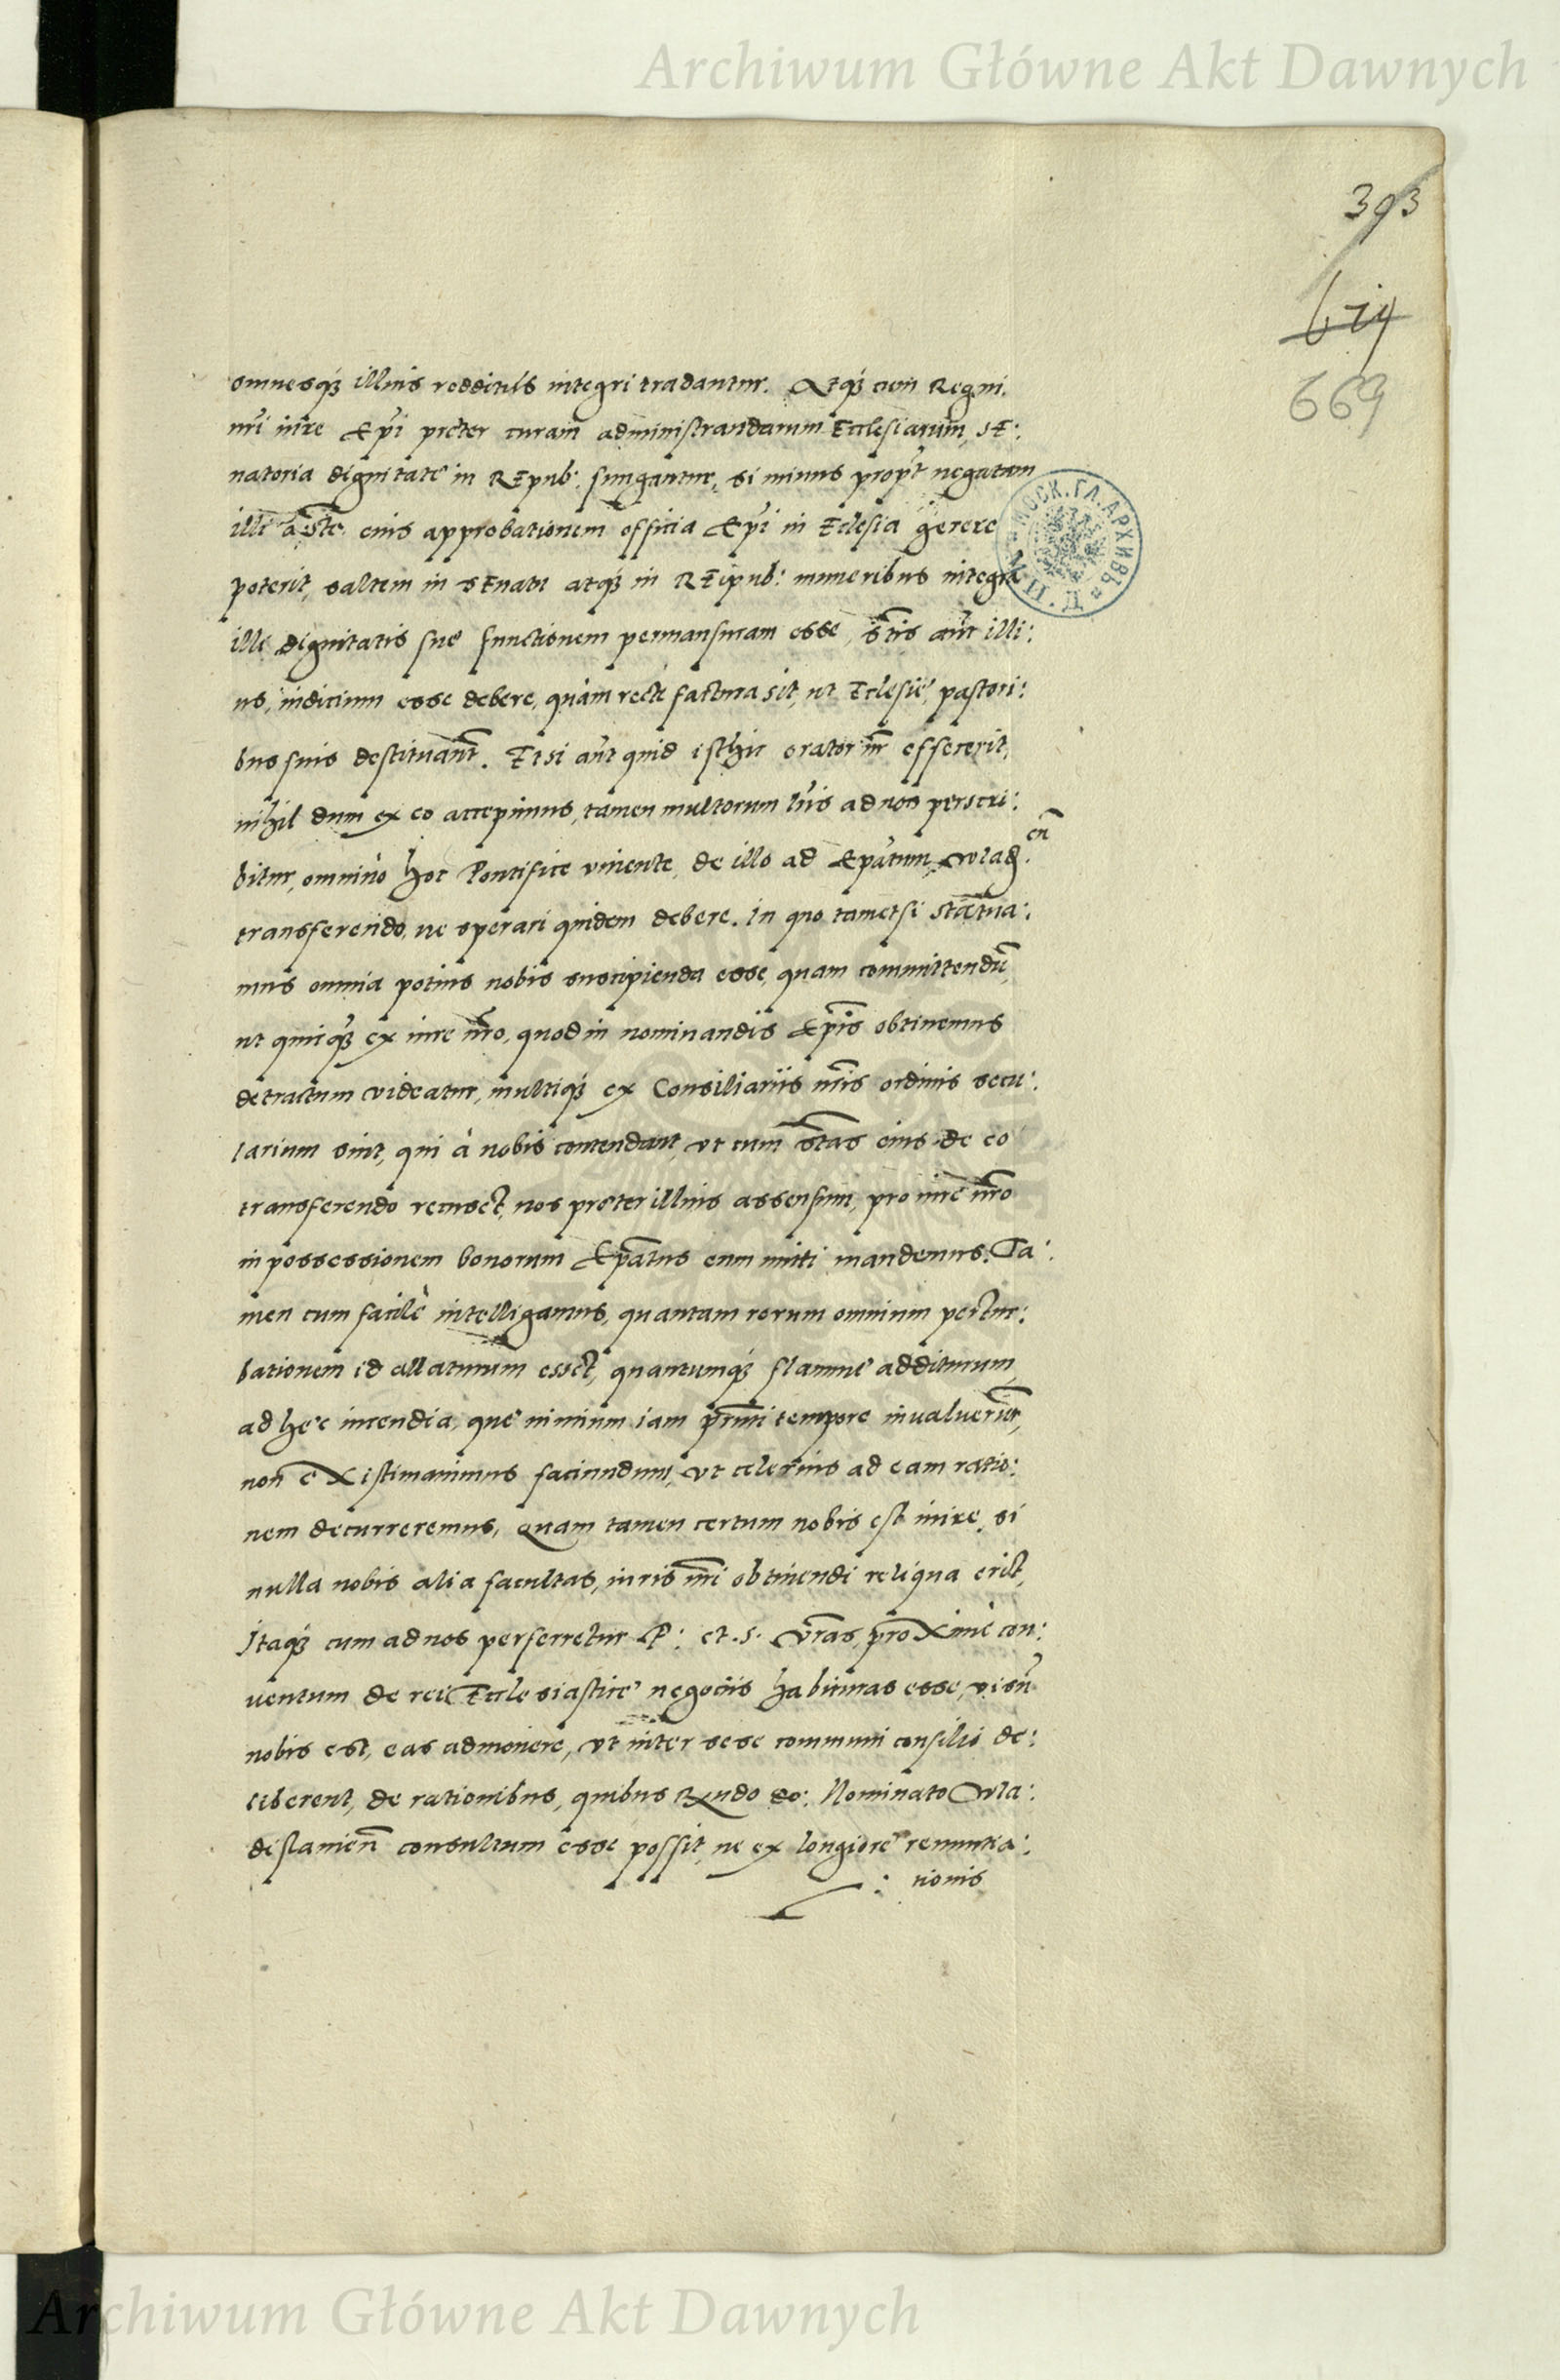 Archiwum Główne Akt Dawnych
393
619
669
omnesq́ꝫ illius redditus integri tradantur. Atq́ꝫ cum Regni
nr̃i iure Ep̃i preter curam administrandarum Ecclesiarum, sE:
natoria dignitate in REpub: fungantur, si minus propt̃ negatam
illi a Ste. eius approbationem officia Ep̃i in Eclesia gerere
poterit, saltem in sEnatu atq́ꝫ in REipub: muneribus integrã
illi dignitatis sue functionem permansuram esse, Stis aut̃ illi:
us, iudicium esse debere, quàm recte factura sit, ut Eclesie, pastori:
bus suis destituant̃. Etsi aut̃ quid isthic orator nr̃ effecerit,
nihil dum ex eo accepimus, tamen multorum lr̃is ad nos perscri:
bitur, omnino hoc Pontifice viuente, de illo ad Ep̃atum Wlad.en̄
transferendo, ne sperari quidem debere. In quo tametsi statua:
mus omnia potius nobis suscipienda esse, quam committendũ,
ut quicq́ꝫ ex iure nr̃o, quod in nominandis Ep̃is obtinemus
detractum videatur, multiq́ꝫ ex Consiliariis nr̃is ordinis secu:
larium sint, qui à nobis contendant, vt cum Stas eius de eo
transferendo recuset, nos preter illius assensum, pro iure nr̃o
in possessionem bonorum Ep̃atus eum mitti mandemus. Ta:
men cum facilè intelligamus, quantam rerum omnium pertur:
bationem id allaturum esset, quantumq́ꝫ flamme additurum,
ad hec incendia, que nimium iam pr̃nti tempore inualuerũt,
non eXistimauimus faciundum, vt celerius ad eam ratio:
nem decurreremus, Quam tamen certum nobis est inire, si
nulla nobis alia facultas, iuris nr̃i obtinendi reliqua erit,
Itaq́ꝫ cum ad nos perferretur P: et .S. Vr̃as, proXime con:
uentum de rei Ecclesiastice negociis habituras esse, visũ
nobis est, eas admonere, vt inter sese communi consilio de:
liberent, de rationibus, quibus Rndo do: Nominato Wla:
dislauien̄ consultum esse possit, ne ex longiore renuntia:
: tionis
Archiwum Główne Akt Dawnych